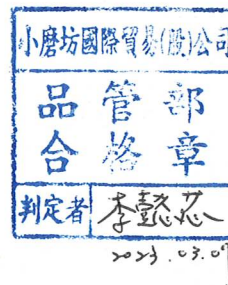 小磨坊國際貿易(股)公司
品管部
合格章
判定者 李懿蕊
2023.03.0